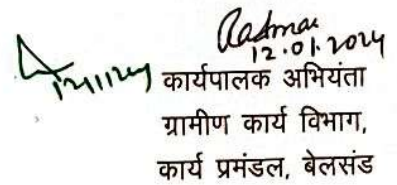 12.01.2024
12/1/24
कार्यपालक अभियंता
ग्रामीण कार्य विभाग,
कार्य प्रमंडल, बेलसंड